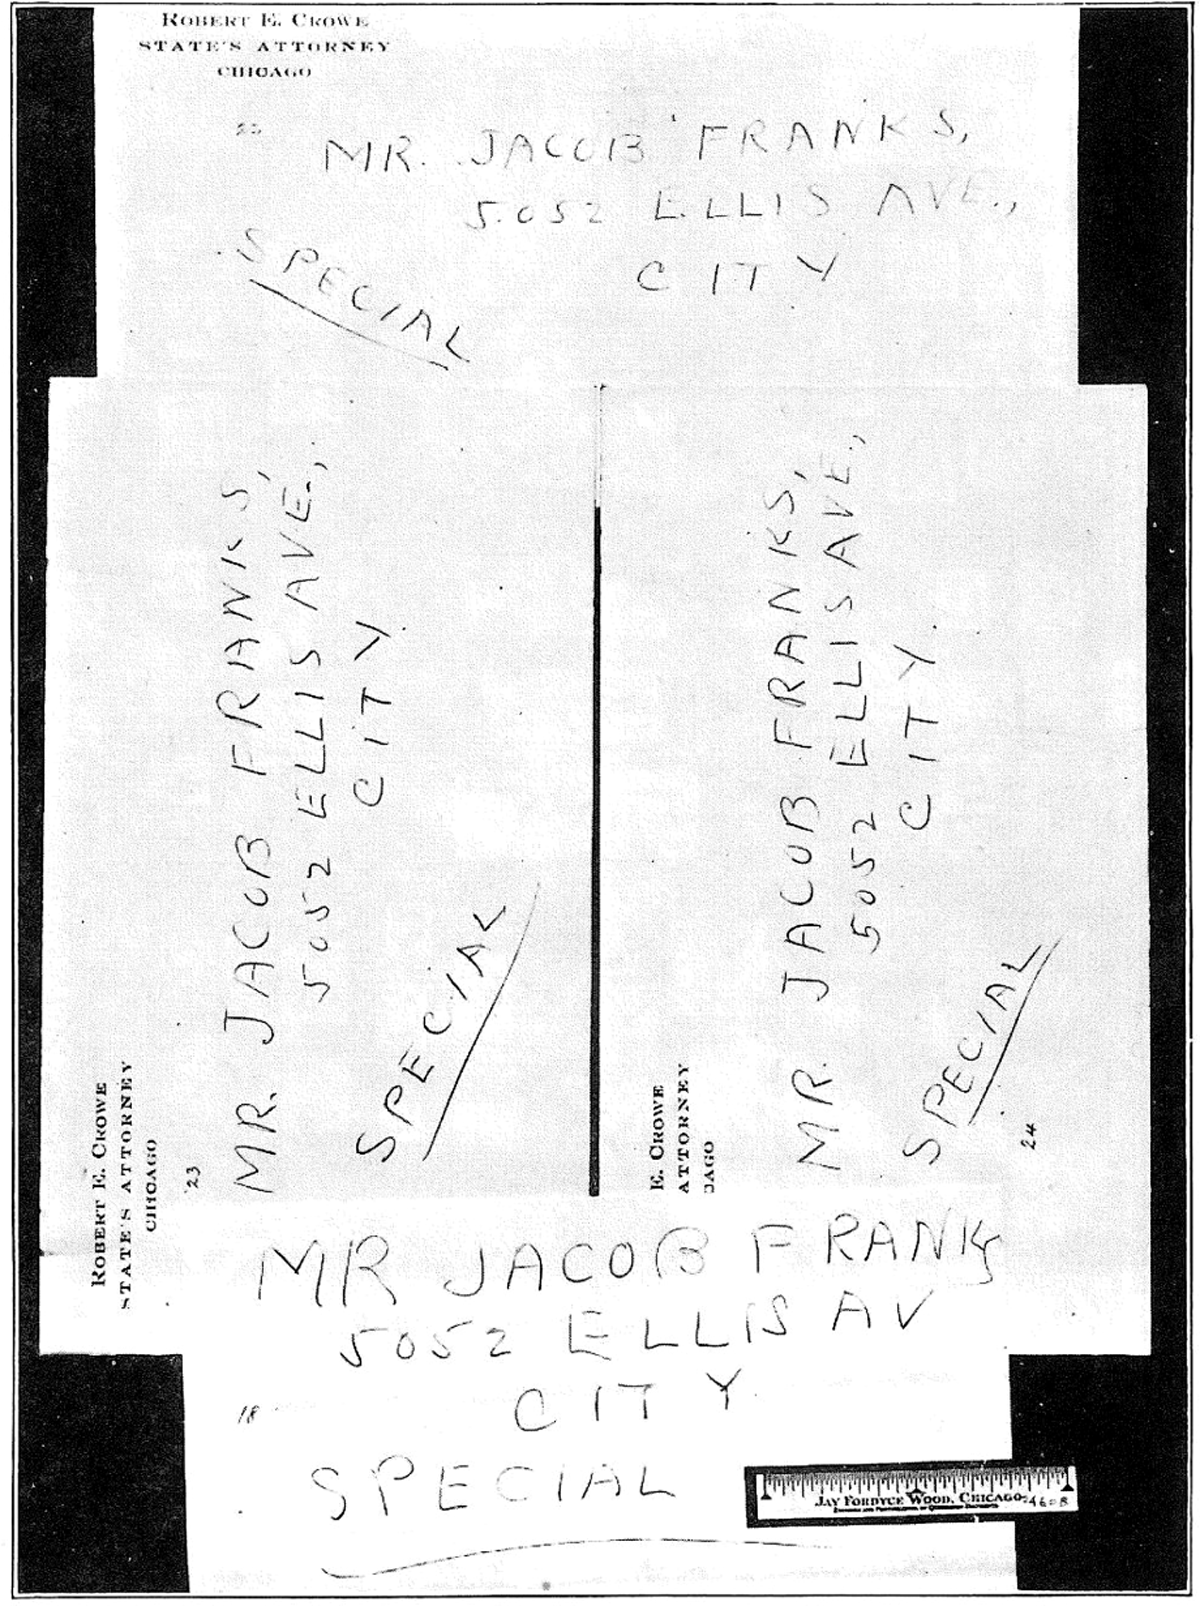 ROBERT E. CROWE
STATE'S ATTORNEY
CHICAGO
MR. JACOB FRANKS,
5052 ELLIS AVE.,
CITY
SPECIAL
ROBERT E. CROWE
STATE'S ATTORNEY
CHICAGO
23
MR. JACOB FRANKS,
5052 ELLIS AVE.,
CITY.
SPECIAL
E. CROWE
ATTORNEY
MR. JACOB FRANKS,
5052 ELLIS AVE.,
CITY.
SPECIAL
24
MR JACOB FRANKS
5052 ELLIS AV
CITY
18
SPECIAL
JAY FORDYCE WOOD, CHICAGO